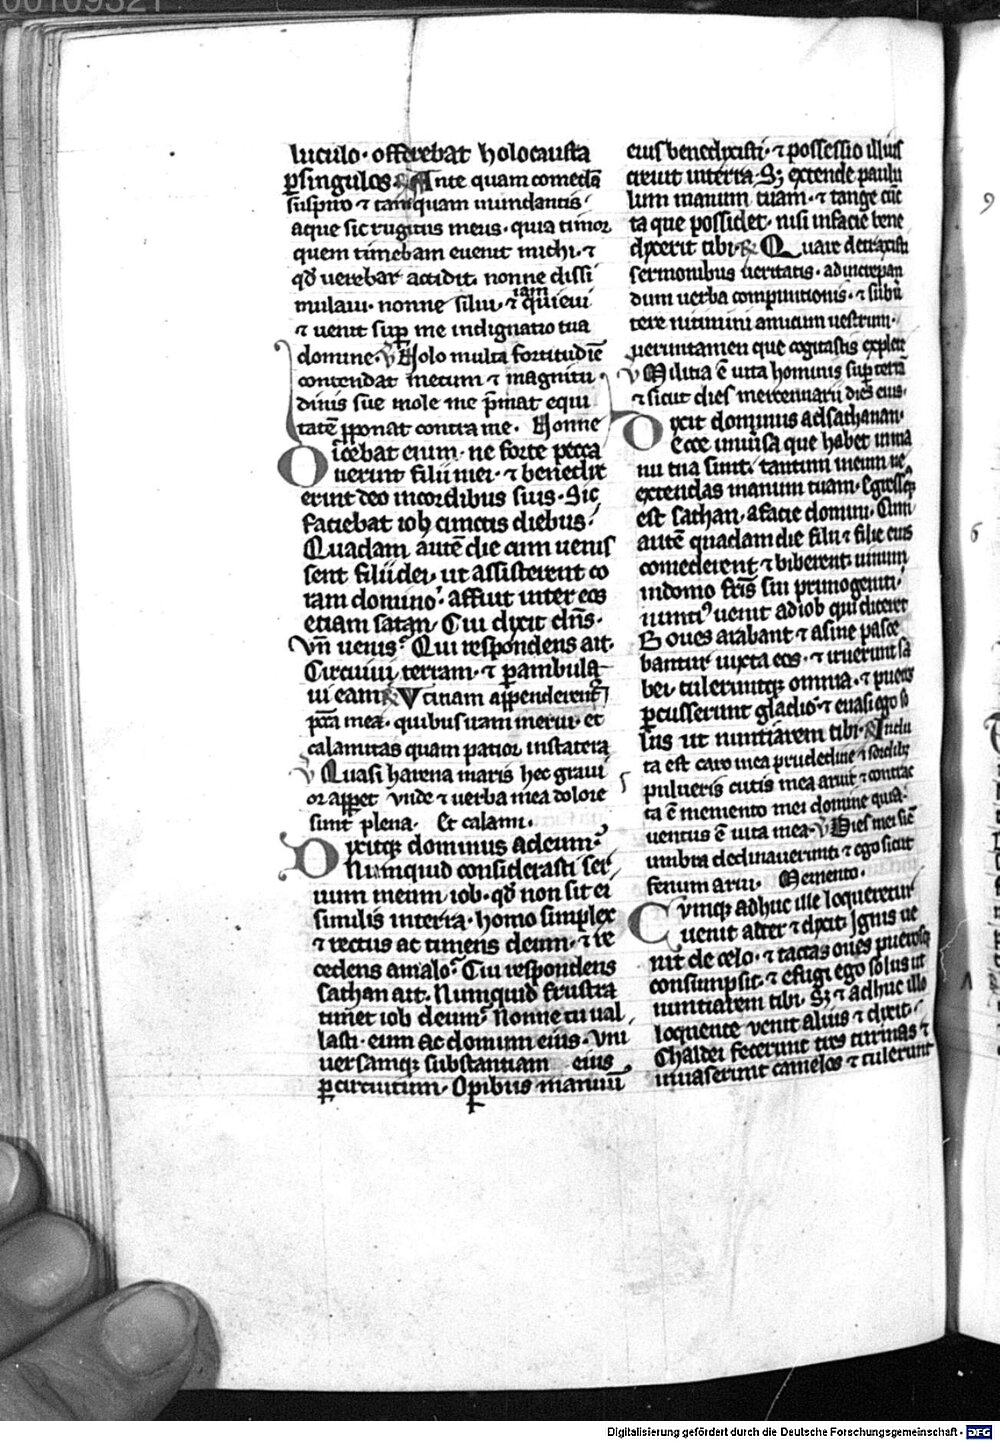 00109321
luculo. offerebat holocausta
ꝑsingulos ℟ Ante quam comedā
suspiro ⁊ tamquam inundantis
aque sic rugitus meus. quia timor
quem timebam euenit michi. ⁊
qđ verebar accidit. nonne dissi
mulaui. nonne silui. ⁊ iam quieui
⁊ uenit suꝑ me indignatio tua
domine ℣ Nolo multa fortitudīe
contendat mecum ⁊ magnitu
dinis sue mole me p̄mat equi
tatē ꝓponat contra me. Nonne
Dicebat enim. ne forte pecca
uerint filii mei. ⁊ benedix
erint deo in cordibus suis. Sic
faciebat iob cunctis diebus.
Quadam autē die cum uenis
sent filii dei. ut assisterent co
ram domino. affuit inter eos
etiam satan. Cui dixit dn̄s.
Vn̄ uenis. Qui respondens ait.
Circuiui terram. ⁊ ꝑambula
ui eam ℟ Vtinam appenderent̄
pc̄ca mea. quibus iram merui. et
calamitas quam patior in statera
℣ Quasi harena maris hec graui
or apparet vnde ⁊ uerba mea dolore
sunt plena. Et calami.
Dixitqꝫ dominus ad eum.
Numquid considerasti ser
uum meum iob. qđ non sit ei
similis in terra. homo simplex
⁊ rectus ac timens deum. ⁊ re
cedens a malo. Cui respondens
sathan ait. Numquid frustra
timet iob deum. Nonne tu ual
lasti. eum ac domum eius. vni
uersamqꝫ substantiam eius
ꝑ circuitum. Opibus manuū
eius benedixisti. ⁊ possessio illius
creuit in terra. Sꝫ extende paulu
lum manum tuam. ⁊ tange cūc
ta que possidet. nisi in facie bene
dixerit tibi. ℟ Quare detraxistis
sermonibus ueritatis. ad increpan
dum uerba componitis. ⁊ subū
tere nitimini amicum uestrum.
ueruntamen que cogitastis explete
℣ Militia ē uita hominis suꝑ terrā
⁊ sicut dies mercennarii dies eius.
Dixit dominus ad sathanan.
Ecce uniūsa que habet in ma
nu tua sunt. tantum in eum ne
extendas manum tuam. Egressusqꝫ
est sathan. a facie domini. Cum
autē quadam die filii ⁊ filie eius
comederent ⁊ biberent uinum
in domo fr̄is sui primogeniti.
nunti⁹ uenit ad iob qui diceret
Boues arabant ⁊ asine pasce
bantur iuxta eos. ⁊ irruerunt sa
bei. tuleruntqꝫ omnia. ⁊ pueros
ꝑcusserunt gladio. ⁊ euasi ego so
lus ut nuntiarem tibi. ℟ Indu
ta est caro mea putredine ⁊ sordibꝫ
pulueris cutis mea aruit ⁊ contrac
ta ē memento mei domine quia
uentus ē uita mea. ℣ Dies mei sic̄
umbra declinauerunt. ⁊ ego sicut
fenum arui. Memento.
Cvmqꝫ adhuc ille loqueretur
uenit alter ⁊ dixit. Ignis ue
nit de celo. ⁊ tactas oues puerosqꝫ
consumpsit. ⁊ effugi ego solus ut
nuntiarem tibi. Sꝫ ⁊ adhuc illo
loquente venit alius ⁊ dixit.
Chaldei fecerunt tres turmas ⁊
inuaserunt camelos ⁊ tulerunt
Digitalisierung gefördert durch die Deutsche Forschungsgemeinschaft - DFG